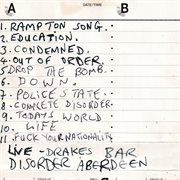 DATE/TIME
A B
1. RAMPTON SONG.
2. EDUCATION.
3. CONDEMNED.
4. OUT OF ORDER.
5 DROP THE BOMB.
6. DOWN.
7. POLICE STATE.
8 COMPLETE DISORDER.
9. TODAYS WORLD
10. LIFE
11. FUCK YOUR NATIONALITY
LIVE - DRAKES BAR
DISORDER ABERDEEN